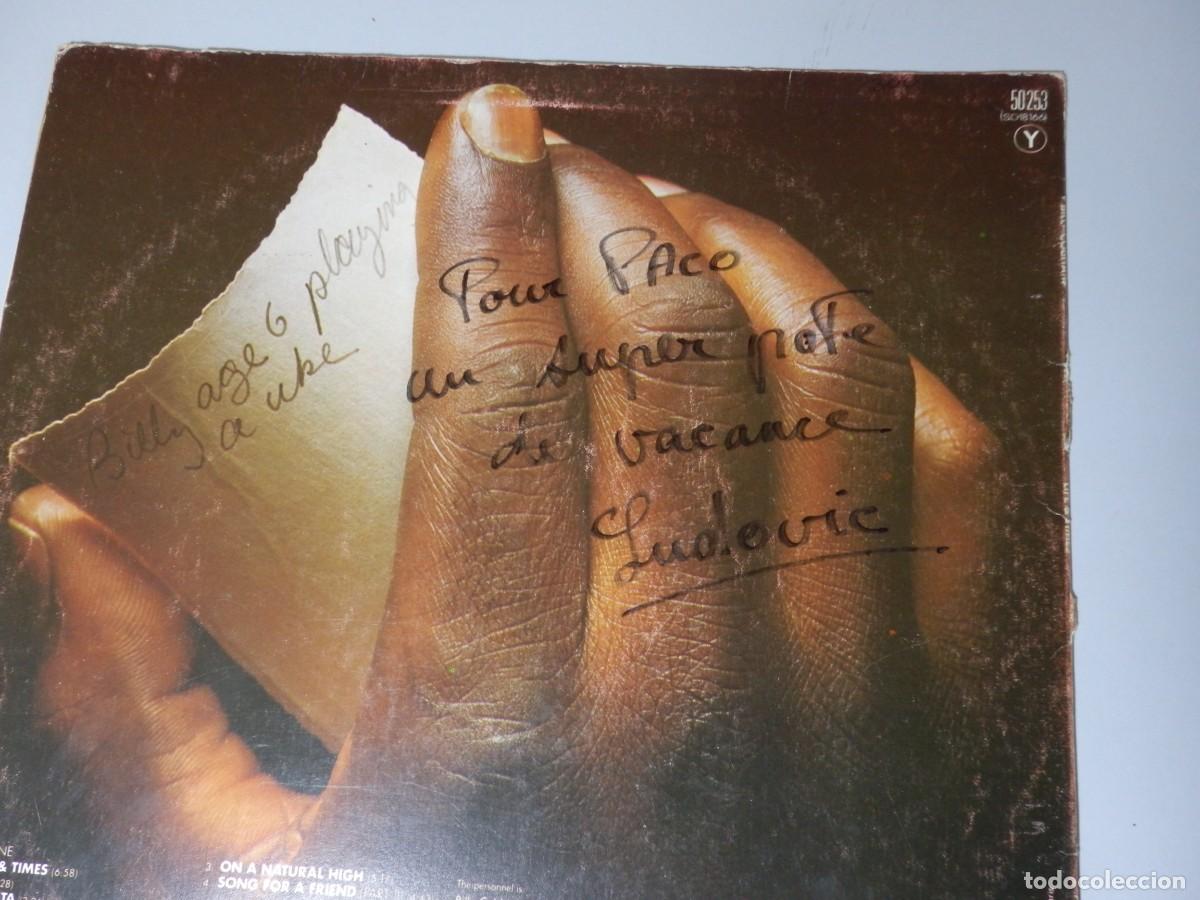 50253
(SD18166)
Y
Billy age 6 playing
a uke
Pour PAco
un super poTe
de vacance
Ludovic
& TIMES (6.58)
3. ON A NATURAL HIGH
4. SONG FOR A FRIEND (PART
The personnel is
todocoleccion